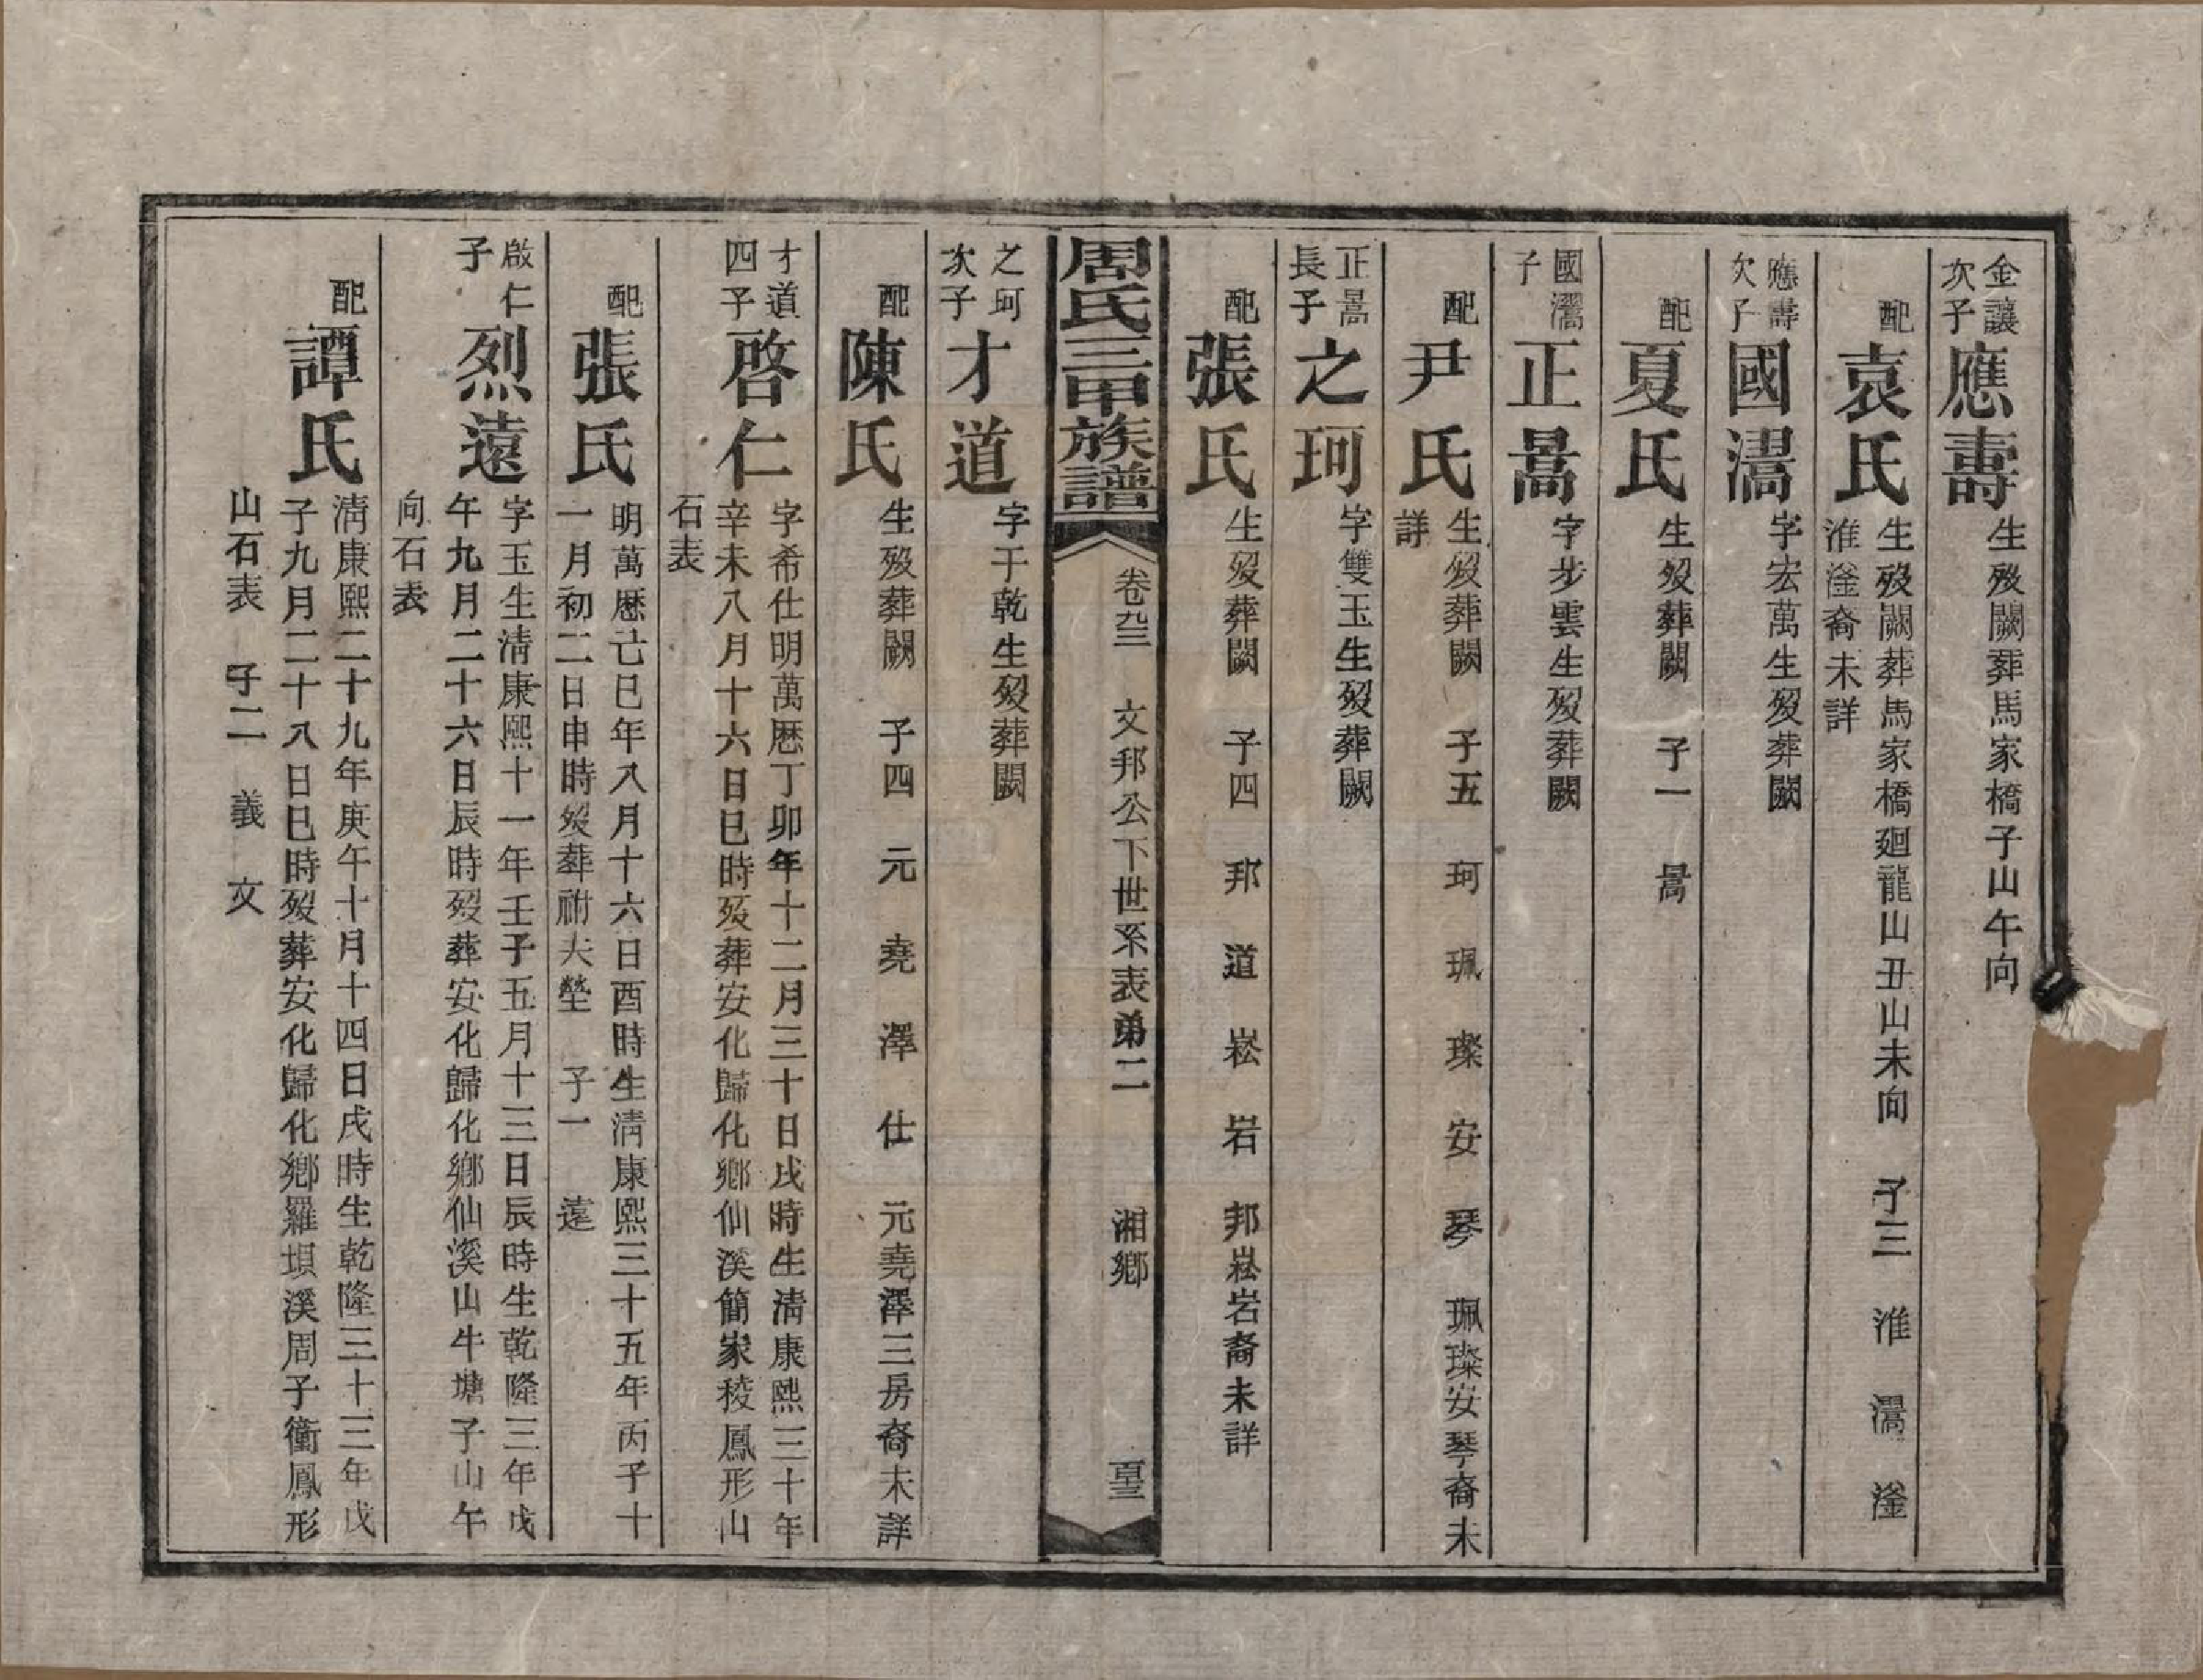 金讓次子
應壽
生歿闕葬馬家橋子山午向
配
袁氏
生歿闕葬馬家橋廻龍山丑山未向 子三 淮 濐 滏
淮滏裔未詳
應壽次子
國濐
字宏萬生歿葬闕
配
夏氏
生歿葬闕 子一 暠
國濐子
正暠
字步雲生歿葬闕
配
尹氏
生歿葬闕 子五 珂 珮 璨 安 琴 珮璨安琴裔未
詳
正暠長子
之珂
字雙玉生歿葬闕
配
張氏
生歿葬闕 子四 邦 道 崧 岩 邦崧岩裔未詳
周氏三甲族譜
卷三 文邦公下世系表弟二 湘鄉
之珂次子
才道
字于乾生歿葬闕
配
陳氏
生歿葬闕 子四 元 堯 澤 仕 元堯澤三房裔未詳
才道四子
啓仁
字希仕明萬厯丁卯年十二月三十日戌時生淸康熙三十年
辛未八月十六日巳時歿葬安化歸化鄉仙溪簡家稜鳳形山
石表
配
張氏
明萬厯己巳年八月十六日酉時生淸康熙三十五年丙子十
一月初二日申時歿葬祔夫塋 子一 遠
啟仁子
烈遠
字玉生淸康熙十一年壬子五月十三日辰時生乾隆三年戊
午九月二十六日辰時歿葬安化歸化鄉仙溪山牛塘子山午
向石表
配
譚氏
淸康熙二十九年庚午十月十四日戌時生乾隆三十三年戊
子九月二十八日巳時歿葬安化歸化鄉羅垻溪周子衝鳳形
山石表 子二 義 文